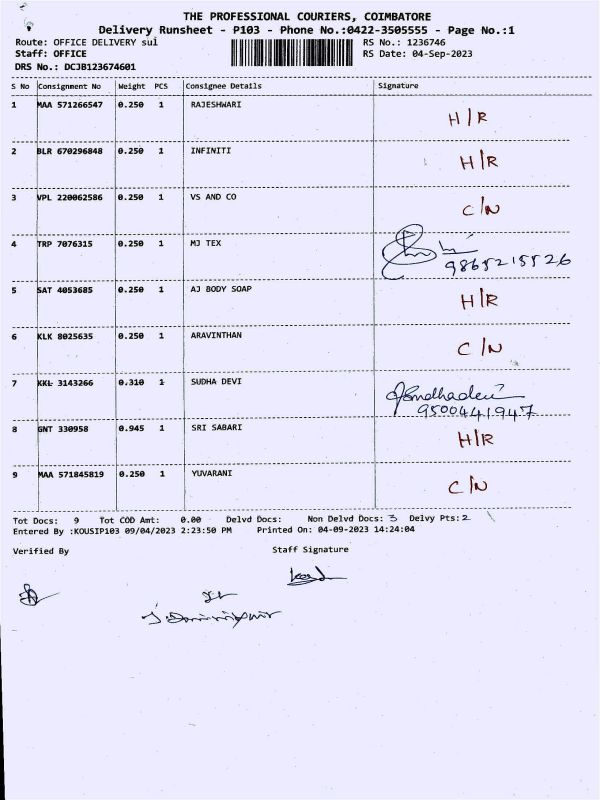 THE PROFESSIONAL COURIERS, COIMBATORE
Delivery Runsheet - P103 - Phone No.:0422-3505555 - Page No.:1
Route: OFFICE DELIVERY sul RS No.: 1236746
Staff: OFFICE RS Date: 04-Sep-2023
DRS No.: DCJB123674601
S No Consignment No Weight PCS Consignee Details Signature
1 MAA 571266547 0.250 1 RAJESHWARI H/R
2 BLR 670296848 0.250 1 INFINITI H/R
3 VPL 220062586 0.250 1 VS AND CO C/N
4 TRP 7076315 0.250 1 MJ TEX
9865215526
5 SAT 4053685 0.250 1 AJ BODY SOAP H/R
6 KLK 8025635 0.250 1 ARAVINTHAN C/N
7 KKL 3143266 0.310 1 SUDHA DEVI Sudhadevi
9500441947
8 GNT 330958 0.945 1 SRI SABARI H/R
9 MAA 571845819 0.250 1 YUVARANI C/N
Tot Docs: 9 Tot COD Amt: 0.00 Delvd Docs: Non Delvd Docs: 3 Delvy Pts: 2
Entered By :KOUSIP103 09/04/2023 2:23:50 PM Printed On: 04-09-2023 14:24:04
Verified By Staff Signature